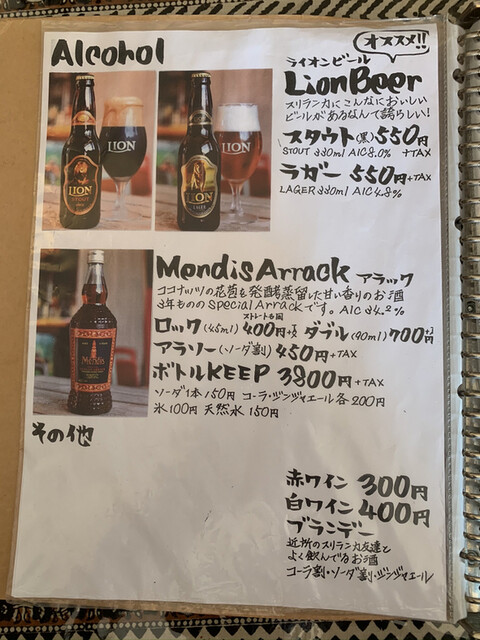 Alcohol
オススメ!!
ライオンビール
Lion Beer
スリランカにこんなにおいしい
ビールがあるなんて誇らしい!
スタウト(黒) 550円
STOUT 330ml Alc 8.0% +TAX
ラガー 550円+TAX
LAGER 330ml Alc 4.8%
LION
STOUT
LION
LION
LION
Mendis Arrack アラック
ココナッツの花蕾を発酵蒸留した甘い香りのお酒
3年ものの Special Arrack です。Alc 34.2%
ストレートも同
ロック(45ml) 400円+T ダブル(90ml) 700円+T
アラソー(ソーダ割) 450円+TAX
ボトルKEEP 3800円+TAX
ソーダ1本 150円 コーラ・ジンジャエール各 200円
氷100円 天然水 150円
Mendis
その他
赤ワイン 300円
白ワイン 400円
ブランデー
近所のスリランカ友達と
よく飲んでるお酒
コーラ割・ソーダ割・ジンジャエール